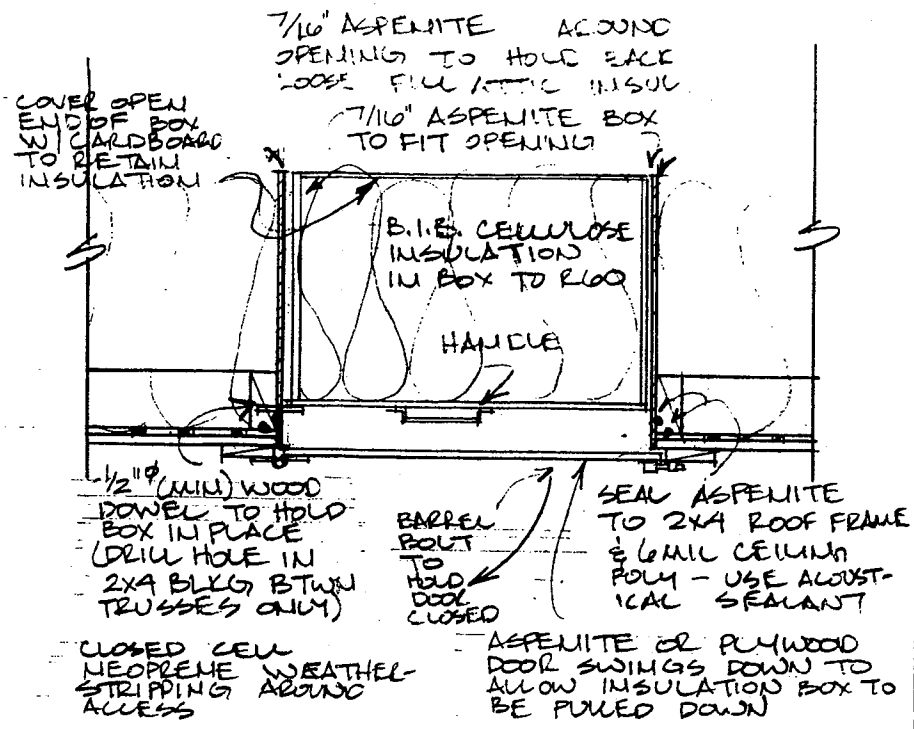 7/16" ASPENITE AROUND
OPENING TO HOLD BACK
LOOSE FILL ATTIC INSUL
COVER OPEN
END OF BOX
W/ CARDBOARD
TO RETAIN
INSULATION
7/16" ASPENITE BOX
TO FIT OPENING
B.I.B. CELLULOSE
INSULATION
IN BOX TO R60
HANDLE
1/2"ø (MIN) WOOD
DOWEL TO HOLD
BOX IN PLACE
(DRILL HOLE IN
2X4 BLKG BTWN
TRUSSES ONLY)
BARREL
BOLT
TO
HOLD
DOOR
CLOSED
SEAL ASPENITE
TO 2X4 ROOF FRAME
& 6 MIL CEILING
POLY - USE ACOUST-
ICAL SEALANT
CLOSED CELL
NEOPRENE WEATHER-
STRIPPING AROUND
ACCESS
ASPENITE OR PLYWOOD
DOOR SWINGS DOWN TO
ALLOW INSULATION BOX TO
BE PULLED DOWN